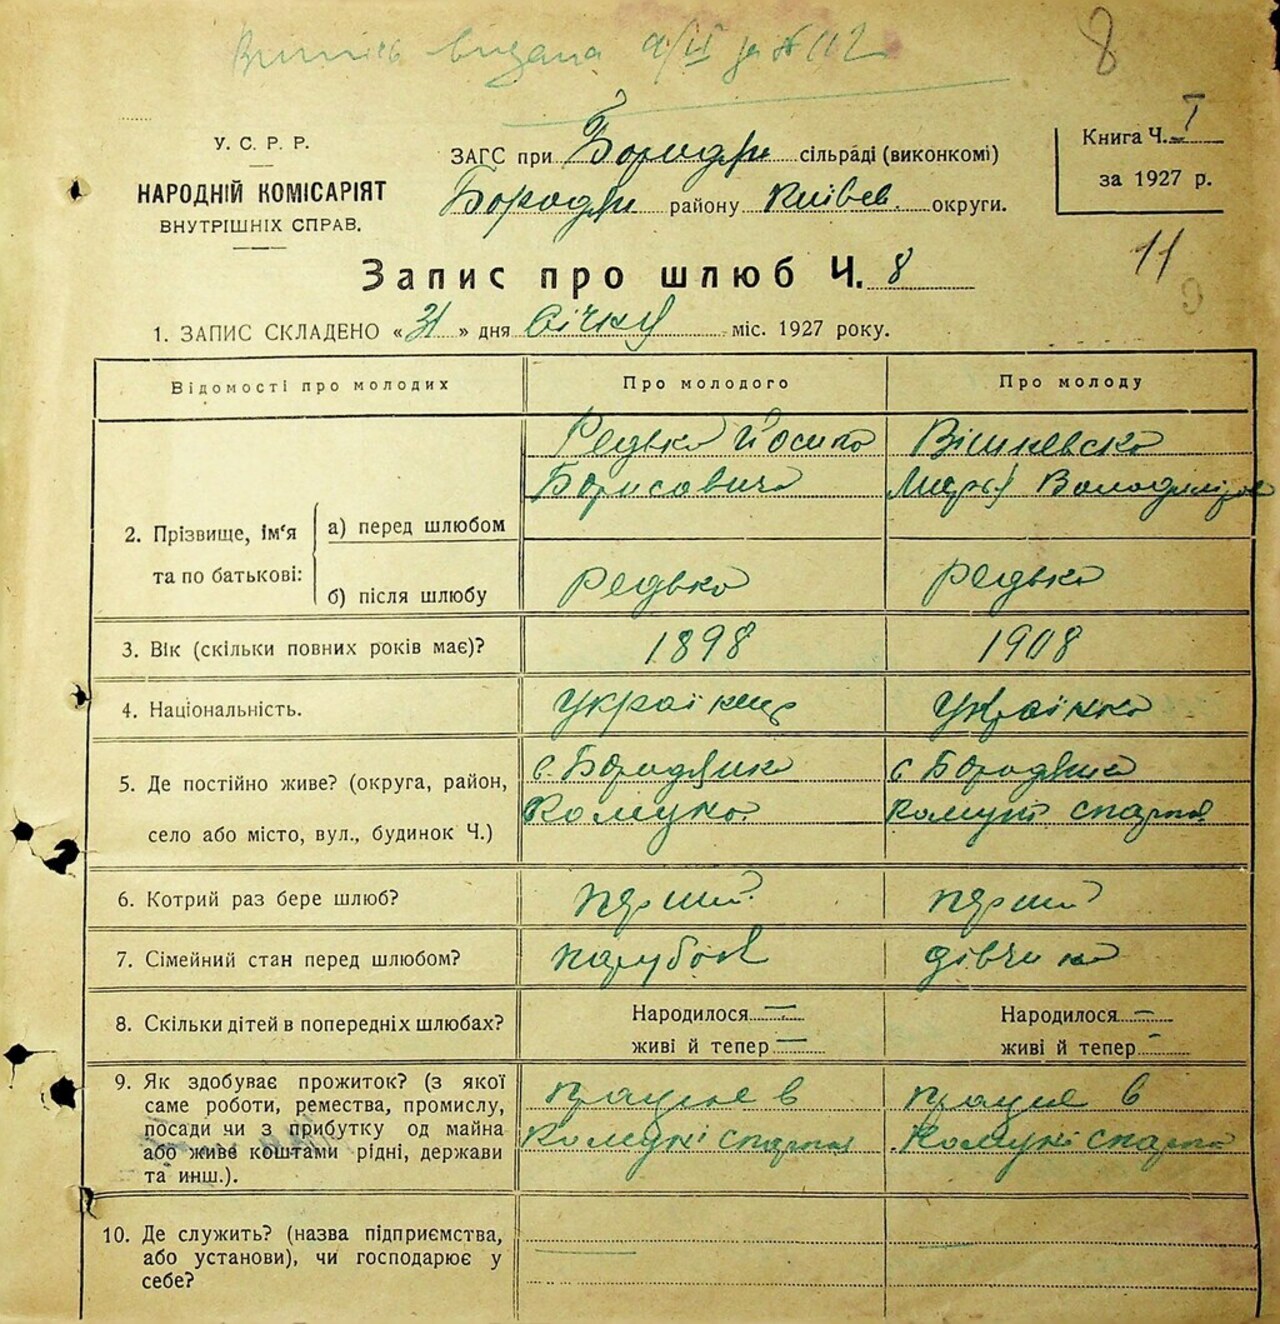 Витпісь видана 9/ІІ за № 112
8
У. С. Р. Р.
НАРОДНІЙ КОМІСАРІЯТ
ВНУТРІШНІХ СПРАВ.
ЗАГС при Бородян сільраді (виконкомі)
Бородян району Київск. округи.
Книга Ч. І
за 1927 р.
11
Запис про шлюб Ч. 8
1. ЗАПИС СКЛАДЕНО «31» дня Січня міс. 1927 року.
Відомості про молодих
Про молодого
Про молоду
2. Прізвище, ім‘я та по батькові:
а) перед шлюбом
Редько Йосипа
Борисовича
Вішневско
Марья Володимиров
б) після шлюбу
Редько
Редько
3. Вік (скільки повних років має)?
1898
1908
4. Національність.
Українец
Українка
5. Де постійно живе? (округа, район,
село або місто, вул., будинок Ч.)
с. Бородянка
Комуна
с Бородянка
Комуні спартак
6. Котрий раз бере шлюб?
перший
перший
7. Сімейний стан перед шлюбом?
парубок
дівчина
8. Скільки дітей в попередніх шлюбах?
Народилося —
живі й тепер —
Народилося —
живі й тепер -
9. Як здобуває прожиток? (з якої
саме роботи, ремества, промислу,
посади чи з прибутку од майна
або живе коштами рідні, держави
та инш.).
працює в
Комуні спартак
працює в
Комуні спартак
10. Де служить? (назва підприємства,
або установи), чи господарює у
себе?